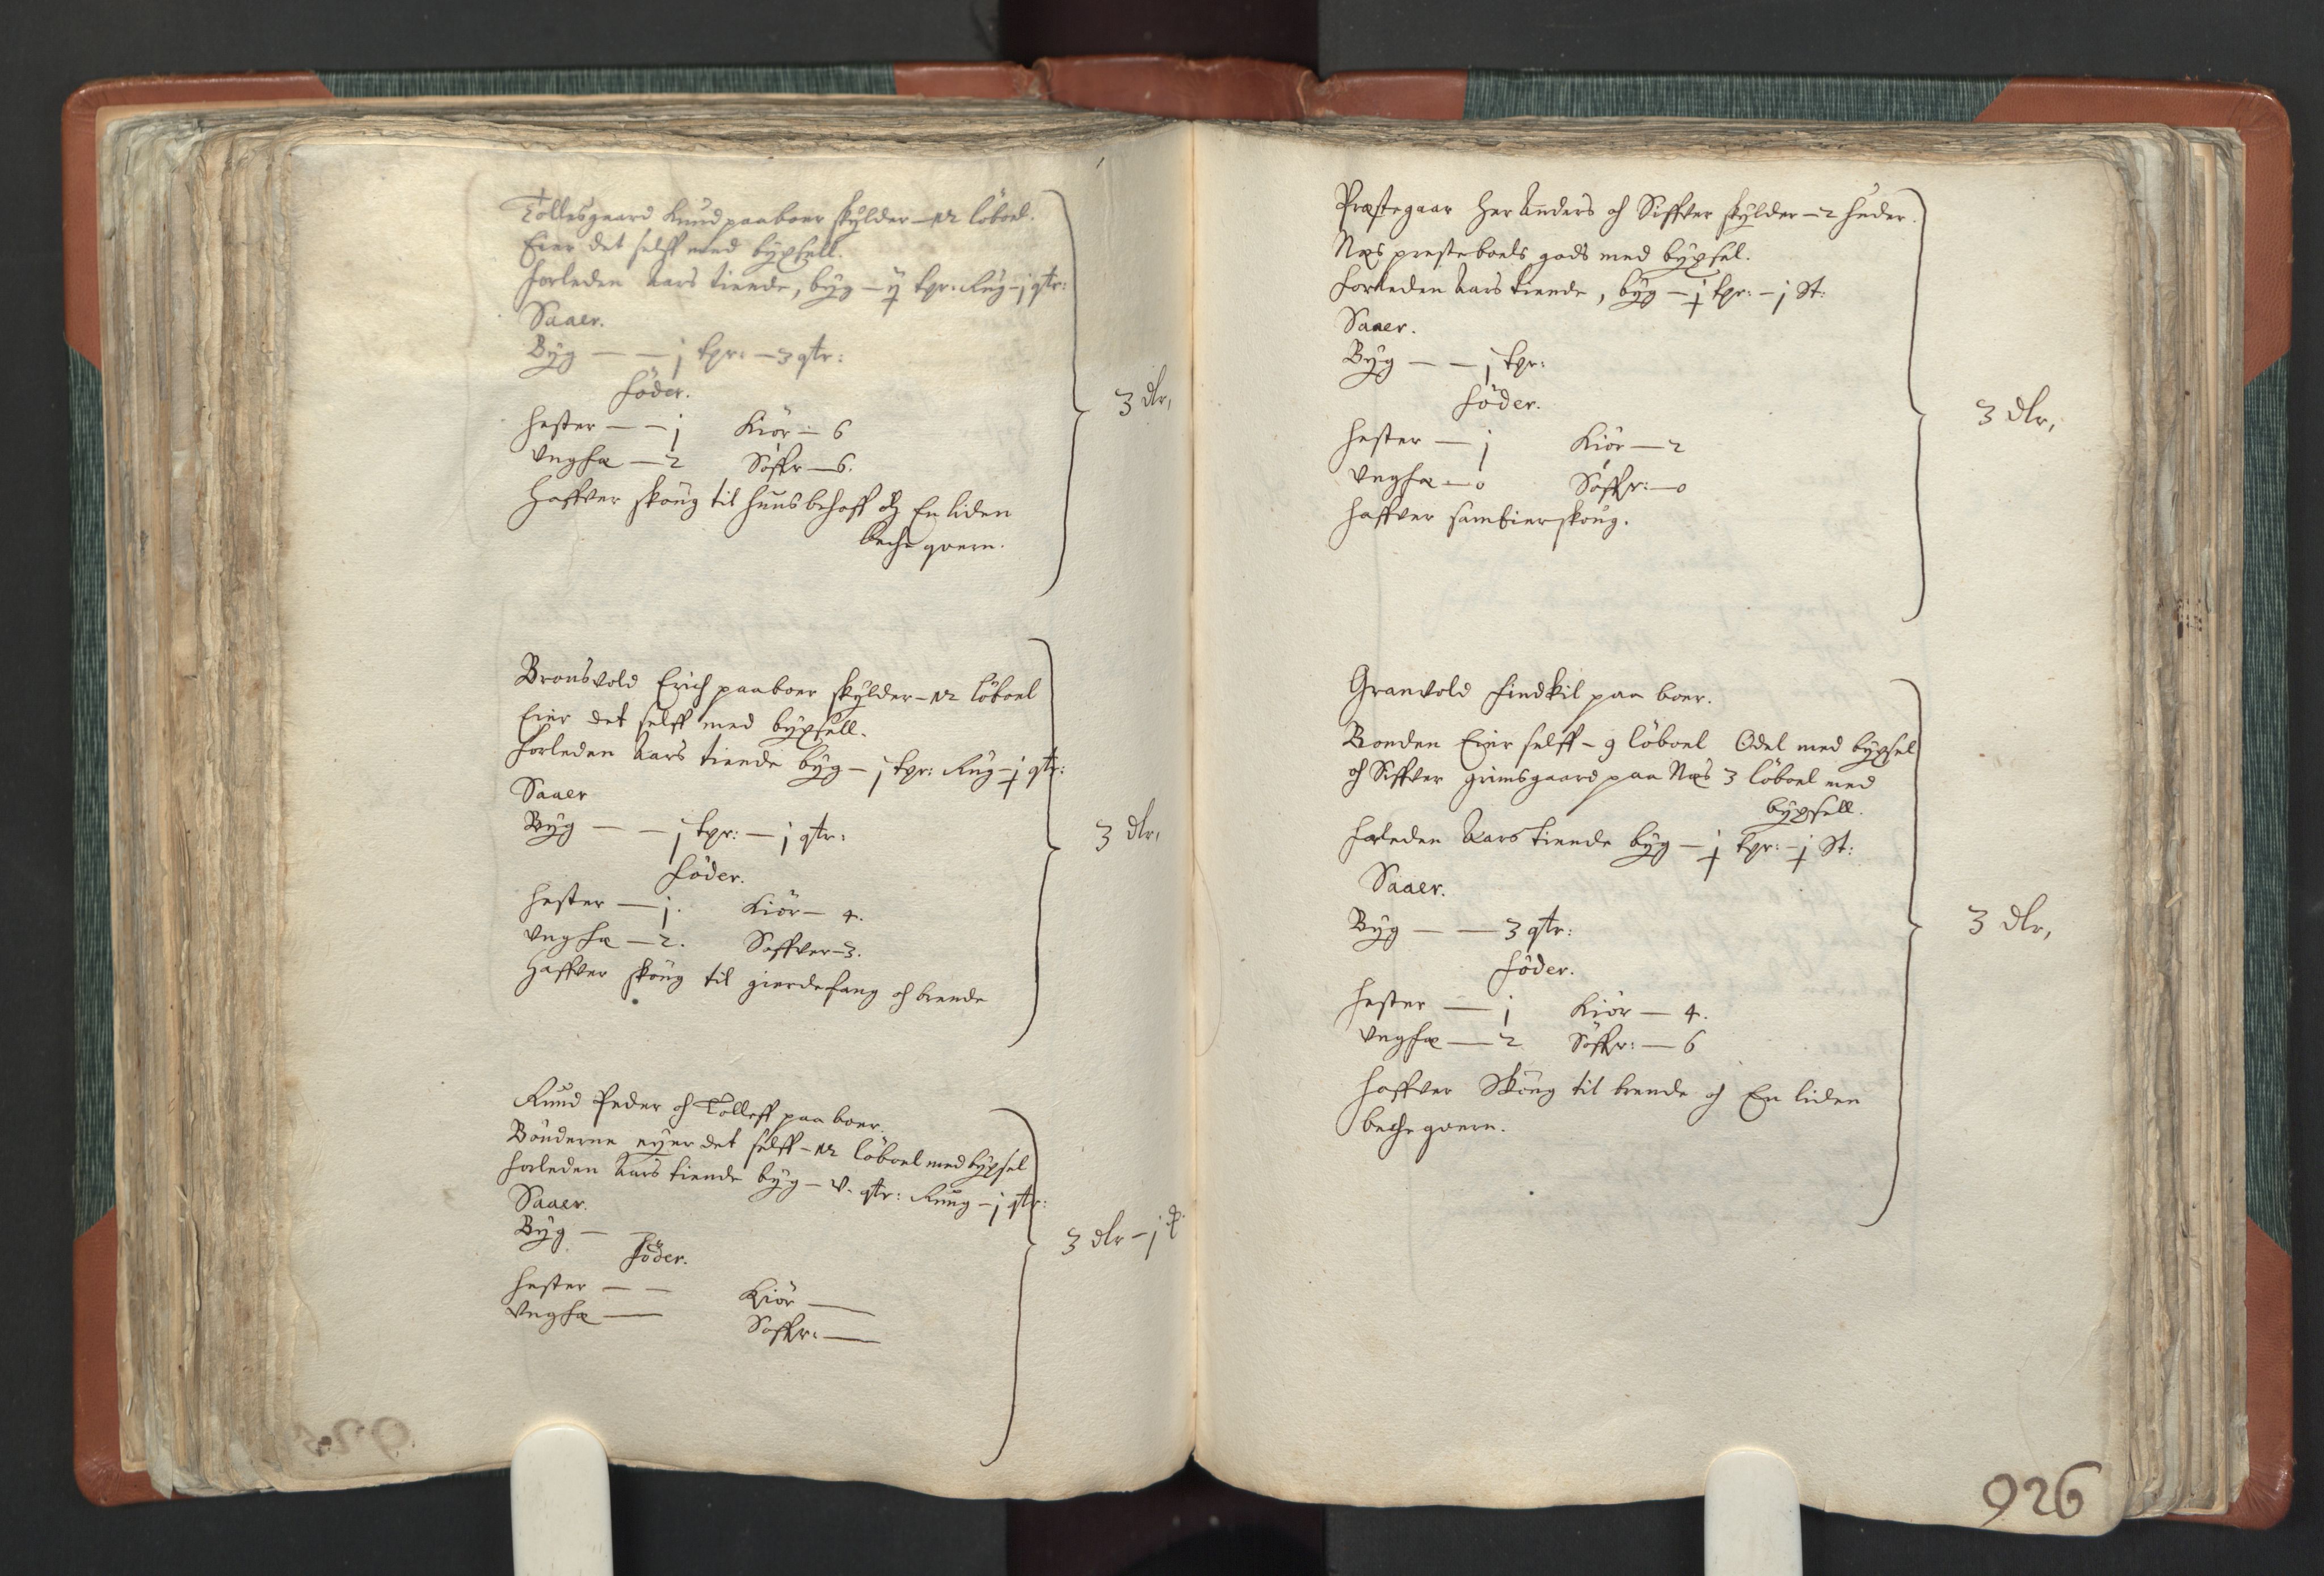 Tollesgaard Knud paaboer skylder – 12 löboel.
Eier det selff med bÿxsell.
Forleden Aars tiende, bÿg – ij tpr: Rug – j qtr:
Saaer.
Bÿg — — j tpr: – 3 qtr:
föder.
Hester — – j Kiör – 6
Vngfæ — 2 Söffr — 6.
Haffver skoug til huusbehoff och En liden
beche quern.
3 dlr,
Bronsvold Erich paaboer skÿlder – 12 löboel
Eier det selff med bÿxsell.
Forleden Aars tiende bÿg – j tpr: Rug – j qtr:
Saaer
Bÿg — — j tpr: — j qtr:
föder.
Hester — j. Kiör – 4.
Vngfæ — 2. Soffver – 3.
Haffver skoug til gierdefang och brende
3 dlr,
Ruud Peder och Tolleff paa boer.
Bönderne eÿer det selff – 12 löboel med bÿxsel
Forleden Aars tiende bÿg – v. qtr: Ruug – j qtr:
Saaer.
Bÿg — —
föder.
Hester — — Kiör —
Vngfæ — Soffr: —
3 dlr – j
Præstegaar Her Anders och Siffver skÿlder – 2 huder.
Næs presteboels gods med bÿxsel.
Forleden Aars tiende, bÿg – j tpr: – j St:
Saaer.
Bÿg — — j tpr:
föder.
Hester — j Kiör — 2
Vngfæ — 0 Söffr: — 0
Haffver sambeierskoug.
3 dlr,
Granvold Findkil paa boer.
Bonden Eier selff – 9 löboel Odel med bÿxsel
och Siffver Grimsgaard paa Næs 3 löboel med
bÿxsell.
Forleden Aars tiende bÿg – j tpr: – j St:
Saaer.
Bÿg — — 3 qtr:
föder.
Hester — j Kiör — 4.
Vngfæ — 2 Söffr: — 6
Haffver Skoug til brende och En liden
beche quern.
3 dlr,
926